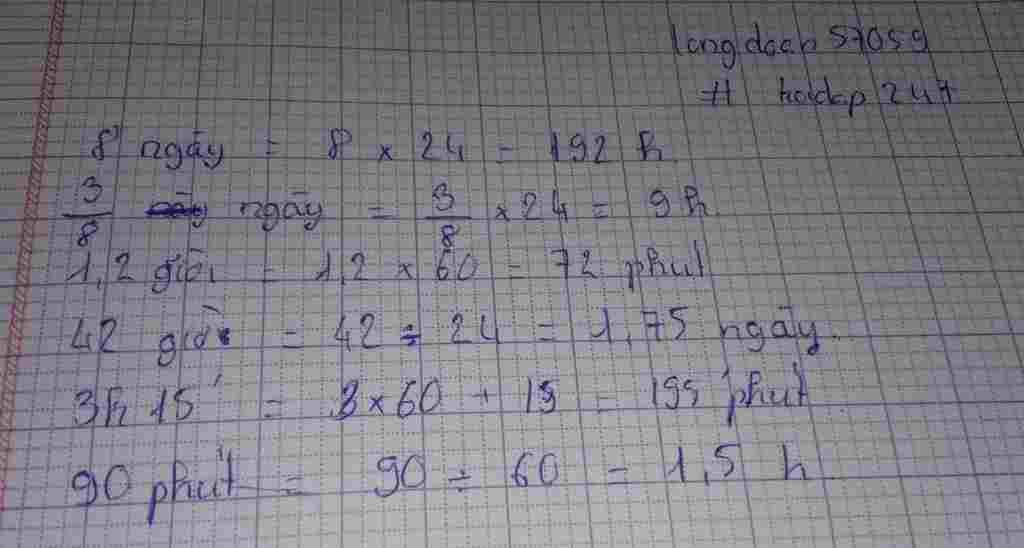 longdoan57059
# hoidap247
8 ngày = 8 × 24 = 192 h
3/8 ngày = 3/8 × 24 = 9 h
1,2 giờ = 1,2 × 60 = 72 phút
42 giờ = 42 ÷ 24 = 1,75 ngày.
3h 15' = 3×60 + 15 = 195 phút
90 phút = 90 ÷ 60 = 1,5 h